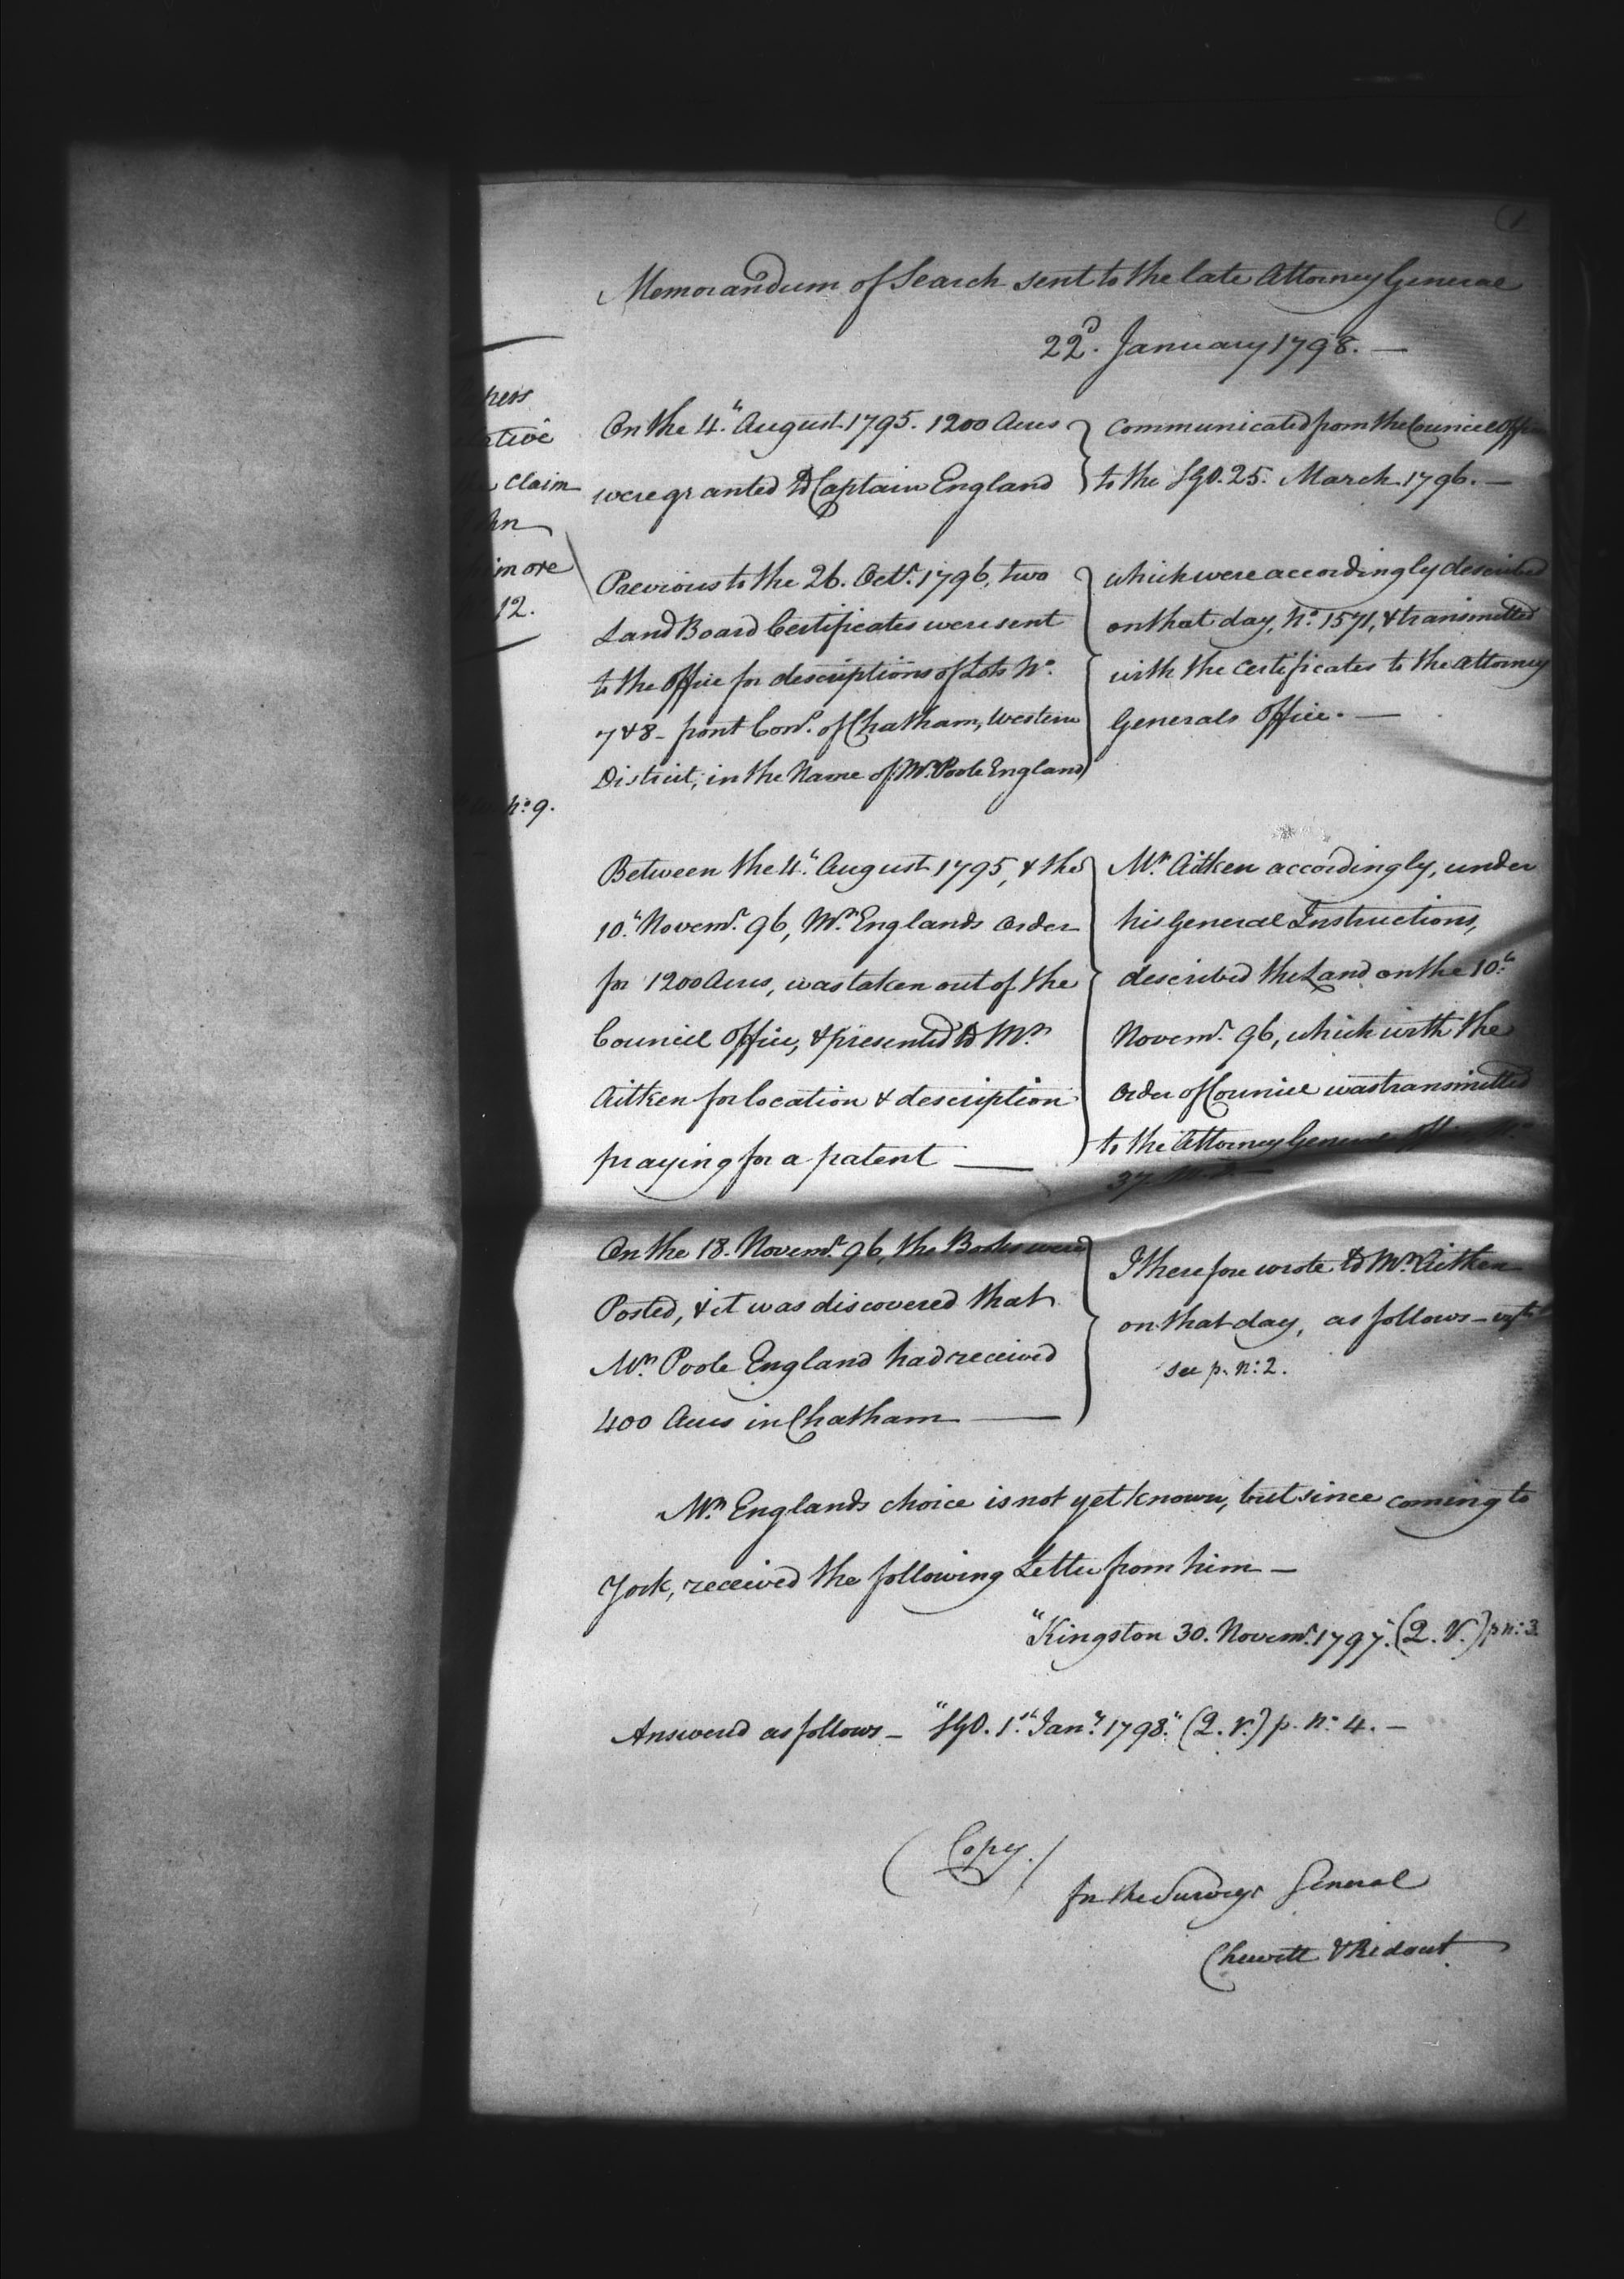 Memorandum of Search sent to the late Attorney General
22d. January 1798. —
On the 4th. August 1795. 1200 Acres
were granted to Captain England
communicated from the Council Office
to the SGO. 25. March 1796. —
Previous to the 26. Octr. 1796, two
Land Board Certificates were sent
to the Office for descriptions of Lots No.
7 & 8 - front Con. of Chatham, Western
District, in the Name of Mr. Poole England
which were accordingly described
on that day, No. 1571, & transmitted
with the Certificates to the Attorney
Generals Office. —
Between the 4th. August 1795, & the
10th. Novemr. 96, Mr. Englands Order
for 1200 Acres, was taken out of the
Council Office, & presented to Mr.
Aitken for location & description
praying for a patent —
Mr. Aitken accordingly, under
his General Instructions,
described the Land on the 10th.
Novemr. 96, which with the
Order of Council was transmitted
to the Attorney General
37
On the 18. Novemr. 96, the Books were
Posted, & it was discovered that
Mr. Poole England had received
400 Acres in Chatham —
I therefore wrote to Mr. Aitken
on that day, as follows —
see p. n: 2.
Mr. Englands choice is not yet known, but since coming to
York, received the following Letter from him —
"Kingston 30. Novemr. 1797." (2. V.) p n: 3.
Answered as follows — "SGO. 1st. Jany. 1798." (2. V.) p. no. 4. —
(Copy.)
for the Surveyr General
Chewett & Ridout
ness
ative
claim
hn
imore
12.
no. 9.